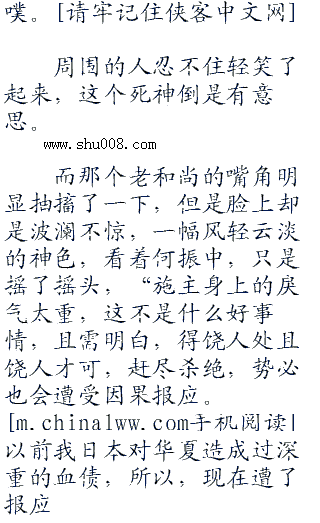 噗。[请牢记住侠客中文网]
周围的人忍不住轻笑了
起来，这个死神倒是有意
思。
www.shu008.com
而那个老和尚的嘴角明
显抽搐了一下，但是脸上却
是波澜不惊，一幅风轻云淡
的神色，看着何振中，只是
摇了摇头，“施主身上的戾
气太重，这不是什么好事
情，且需明白，得饶人处且
饶人才可，赶尽杀绝，势必
也会遭受因果报应。
[m.chinalww.com手机阅读|
以前我日本对华夏造成过深
重的血债，所以，现在遭了
报应